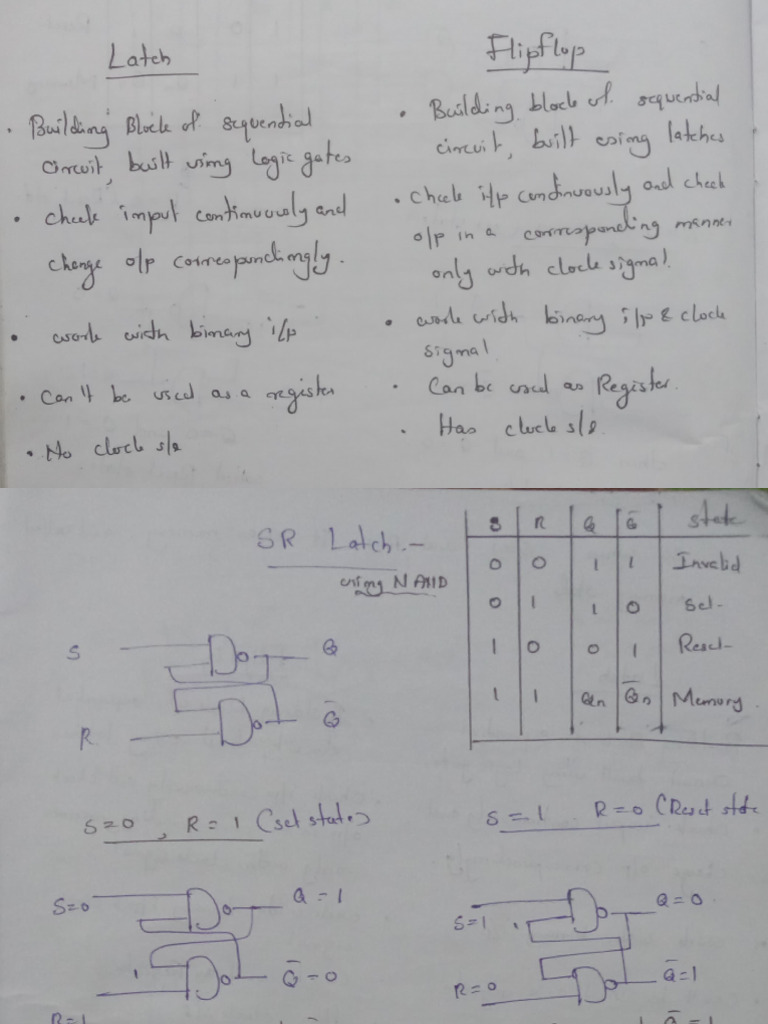 Latch
· Building Block of sequential
circuit, built using Logic gates
· check input continuously and
change o/p correspondingly.
· work with binary i/p
· Can't be used as a register
· No clock s/g
Flipflop
· Building block of sequential
circuit, built using latches
· check i/p continuously and check
o/p in a corresponding manner
only with clock signal.
· work with binary i/p & clock
signal
· Can be used as Register.
· Has clock s/g.
SR Latch -
using NAND
S R Q Q̅ state
0 0 1 1 Invalid
0 1 1 0 Set
1 0 0 1 Reset
1 1 Qn Q̅n Memory
S Q
R Q̅
S=0, R=1 (set state)
S=0 Q=1
1 Q̅=0
R=1
S=1 R=0 (Reset state
S=1 Q=0
R=0 Q̅=1
Q̅=1